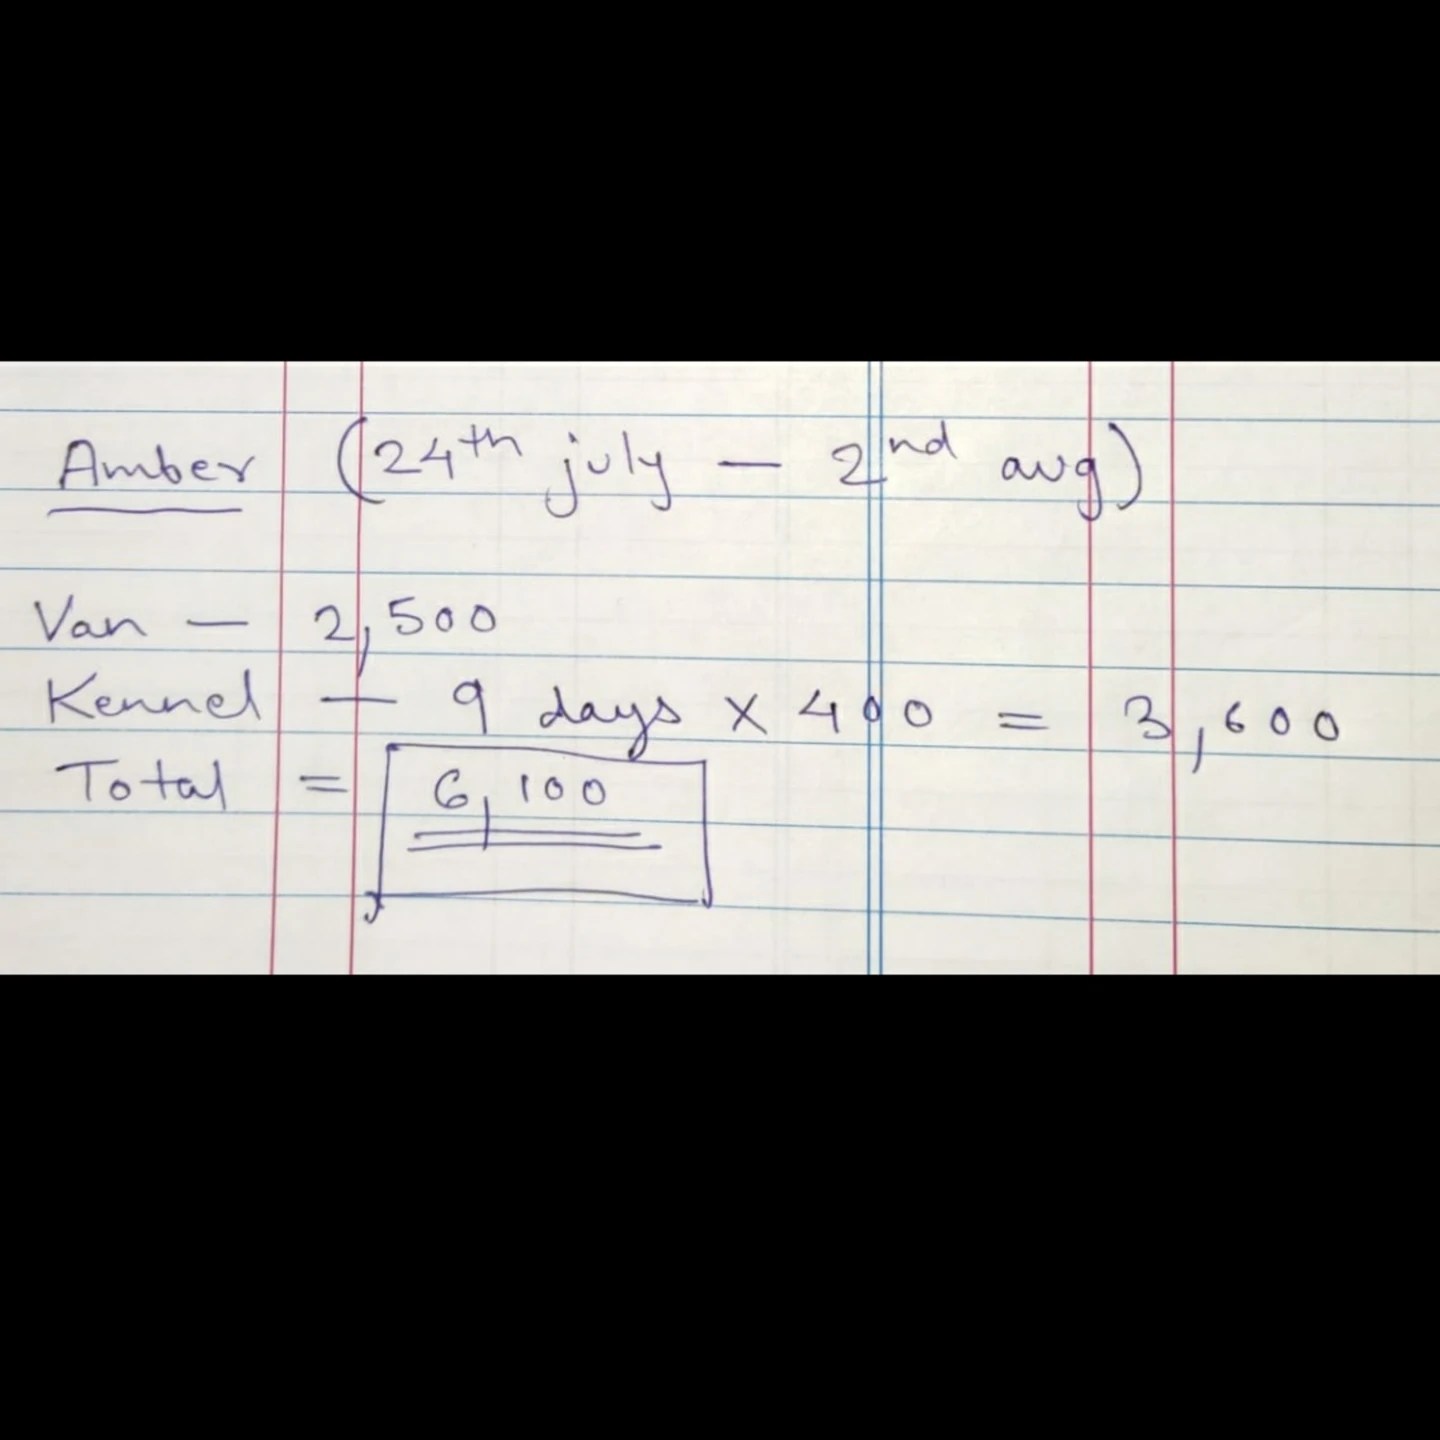 Amber (24th july — 2nd aug)
Van — 2,500
Kennel — 9 days X 400 = 3,600
Total = 6,100